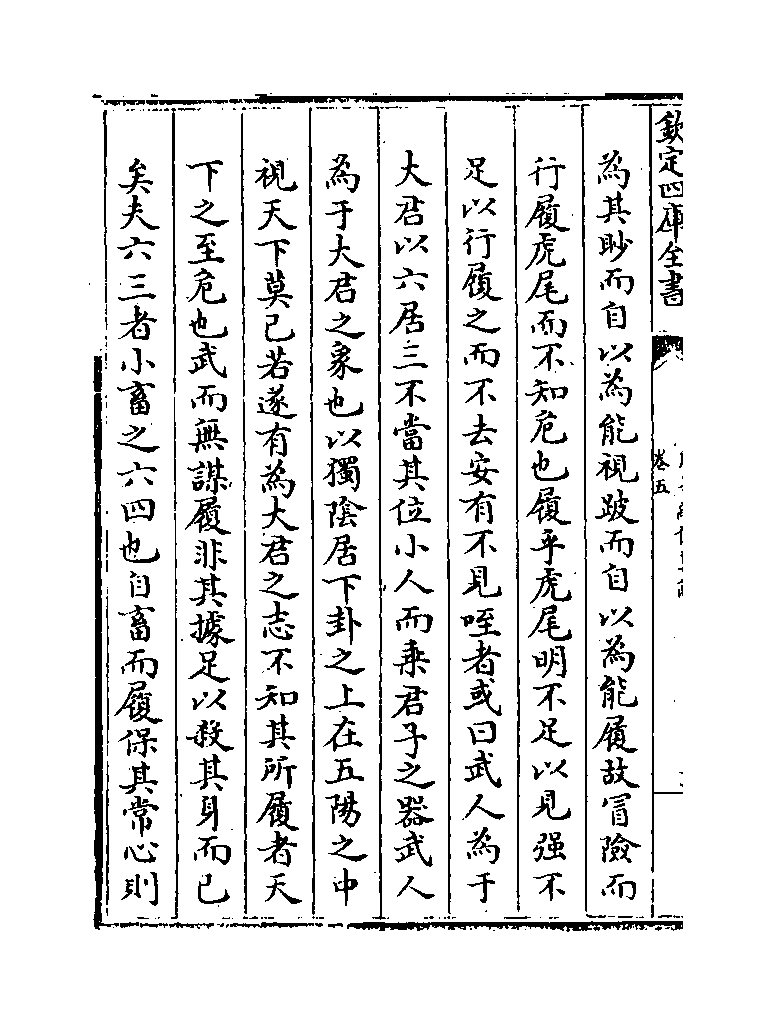 欽定四庫全書
卷五
為其眇而自以為能視跛而自以為能履故冒險而
行履虎尾而不知危也履乎虎尾明不足以見强不
足以行履之而不去安有不見咥者或曰武人為于
大君以六居三不當其位小人而乘君子之器武人
為于大君之象也以獨陰居下卦之上在五陽之中
視天下莫己若遂有為大君之志不知其所履者天
下之至危也武而無謀履非其據足以殺其身而已
矣夫六三者小畜之六四也自畜而履保其常心則